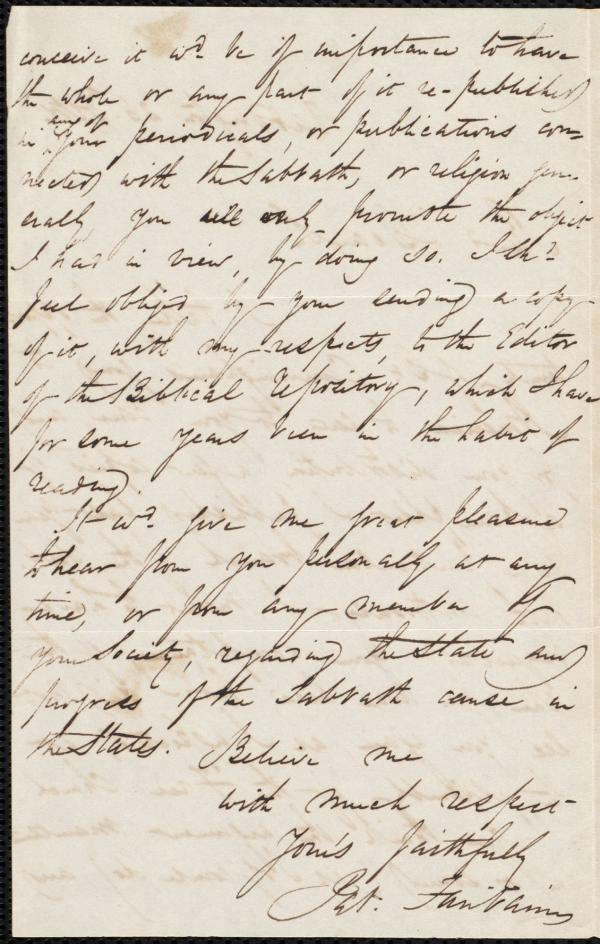 conceive it wd. be of importance to have
the whole or any part of it re-published
in any of your periodicals, or publications con-
nected with the Sabbath, or religion gen-
erally, you will only promote the object
I had in view, by doing so. I shd.
feel obliged by your sending a copy
of it, with my respects, to the Editor
of the Biblical Repository, which I have
for some years been in the habit of
reading.
It wd. give me great pleasure
to hear from you personally at any
time, or from any member of
your Society, regarding the State and
progress of the Sabbath cause in
the States. Believe me
with much respect
Your's faithfully
Pat. Fairbairn